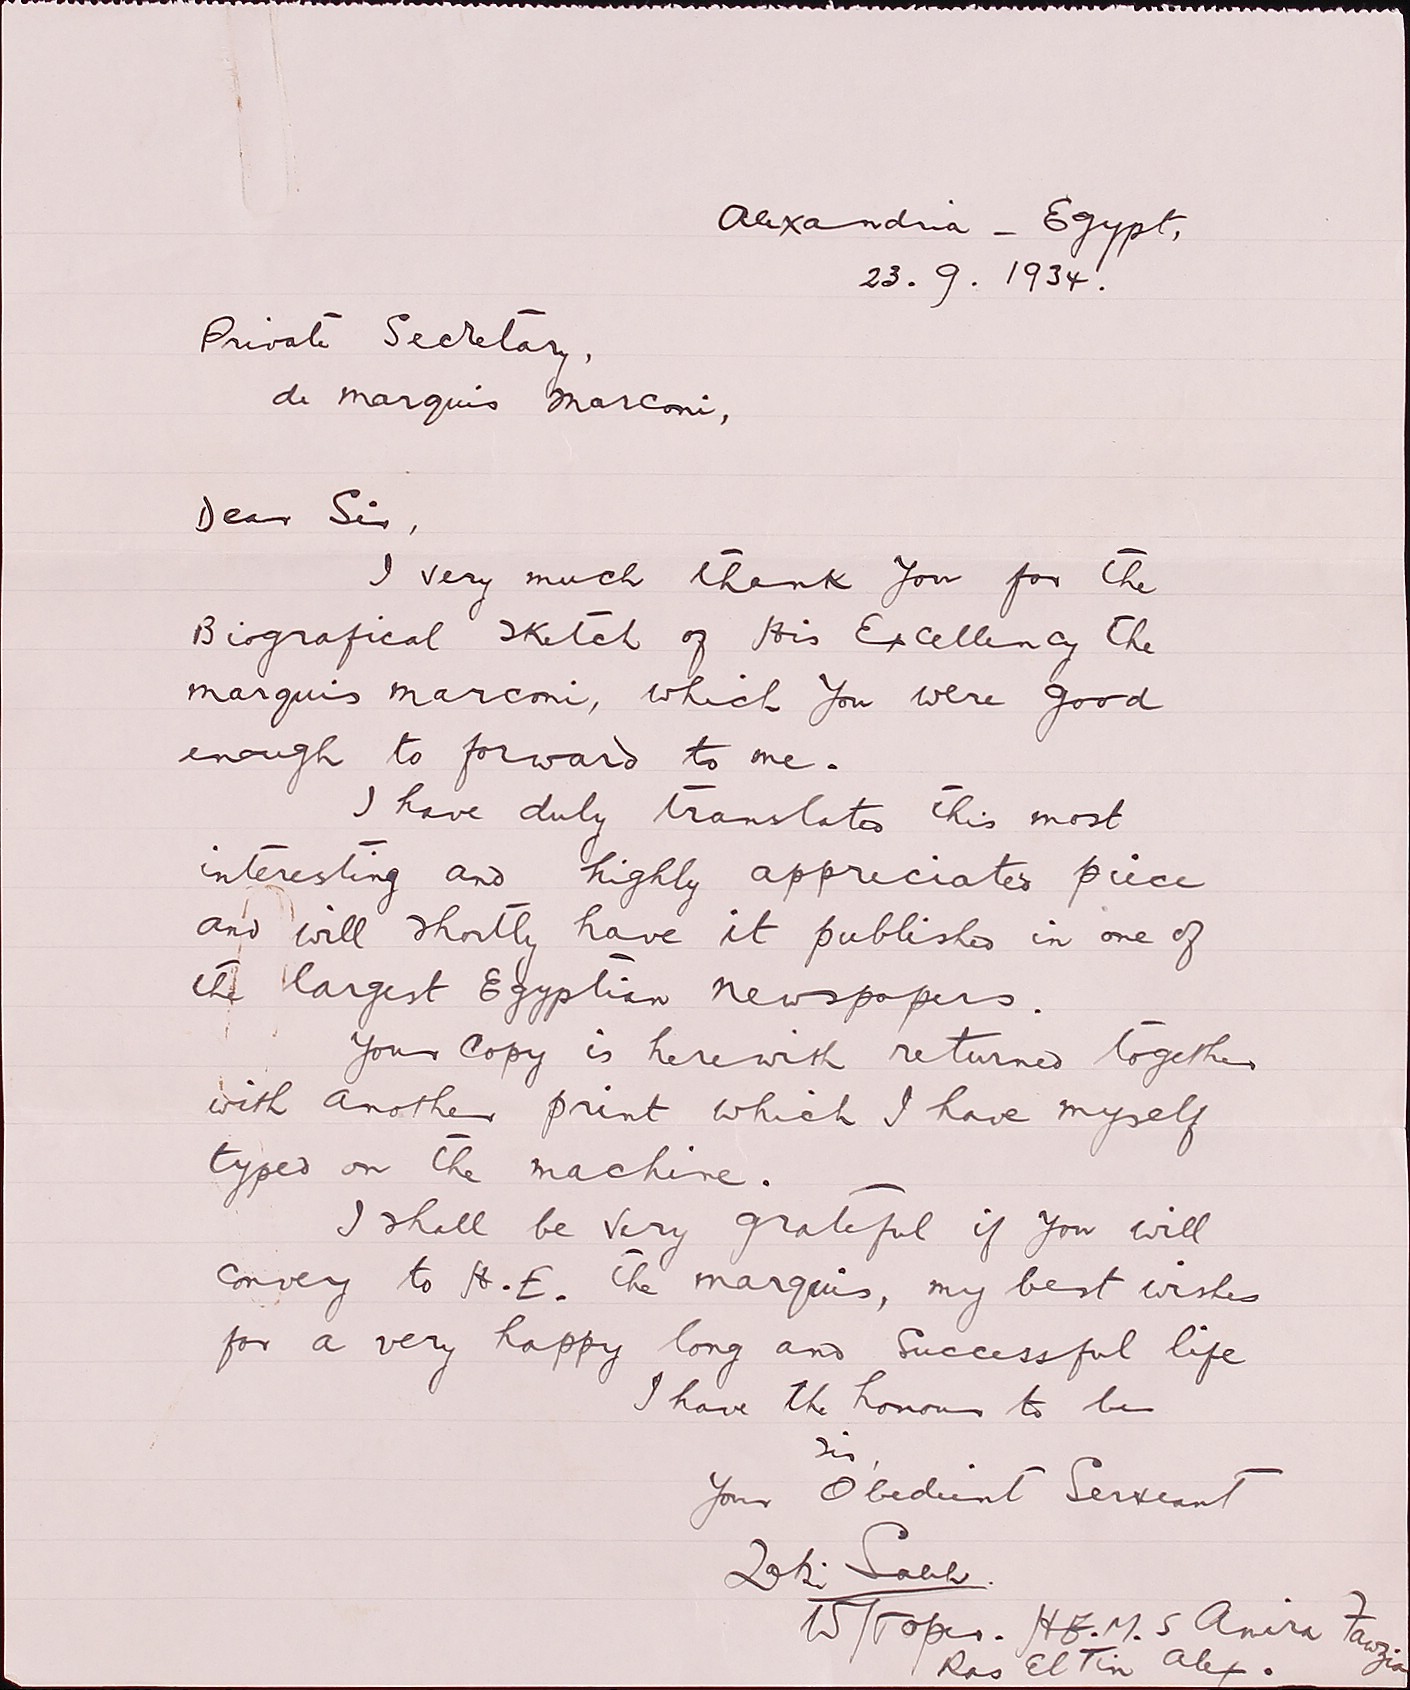 Alexandria – Egypt,
23. 9. 1934.
Private Secretary,
de Marquis Marconi,
Dear Sir,
I very much thank You for the
Biografical Sketch of His Excellency the
Marquis Marconi, which You were good
enough to forward to me.
I have duly translated this most
interesting and highly appreciated piece
and will shortly have it published in one of
the largest Egyptian Newspapers.
Your Copy is herewith returned together
with another print which I have myself
typed on the machine.
I shall be very grateful if You will
convey to H.E. the Marquis, my best wishes
for a very happy long and Successful life
I have the honour to be
Sir,
Your Obedient Serveant
Zeki Saleh.
W/T oper. H.E.M.S Amira Fawzia
Ras El Tin Alex.